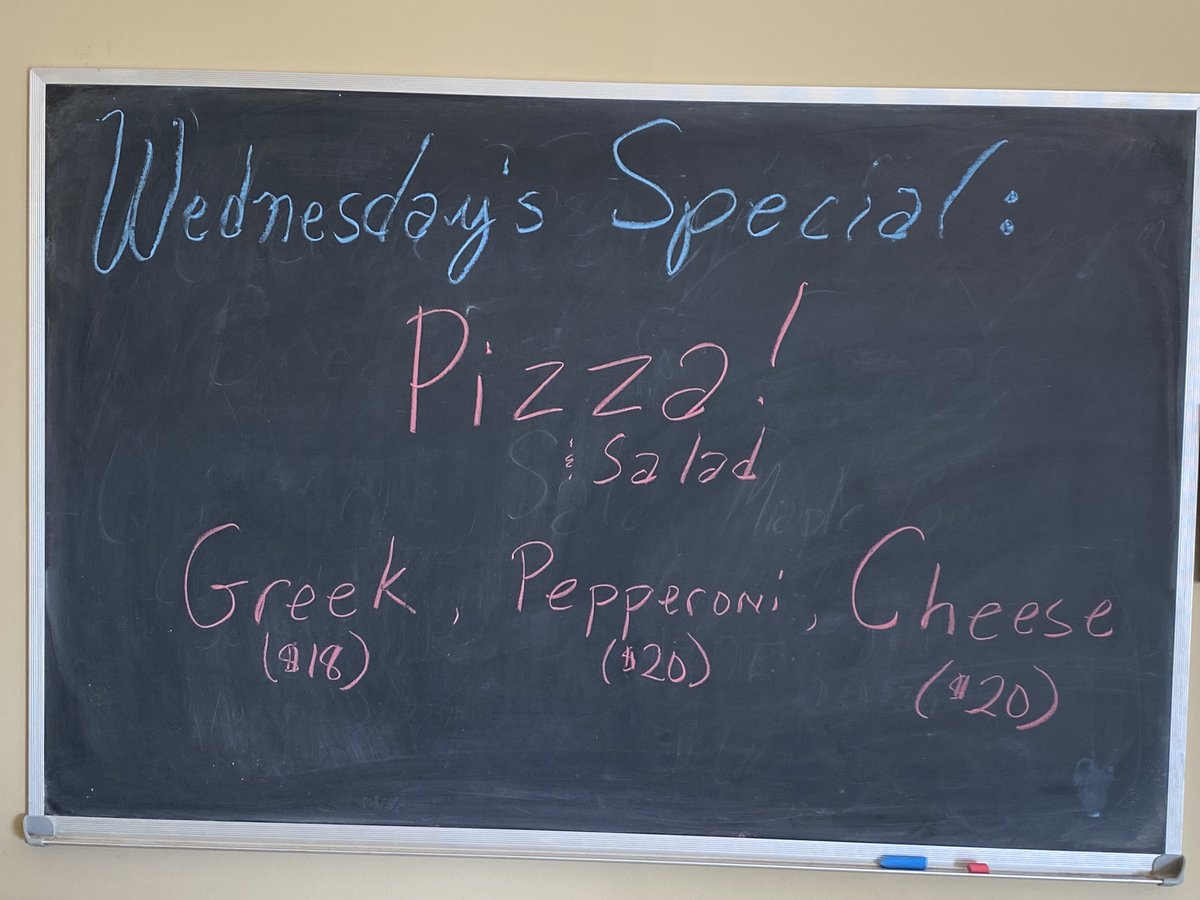 Wednesday's Special:
Pizza!
& Salad
Greek, Pepperoni, Cheese
($18) ($20) ($20)